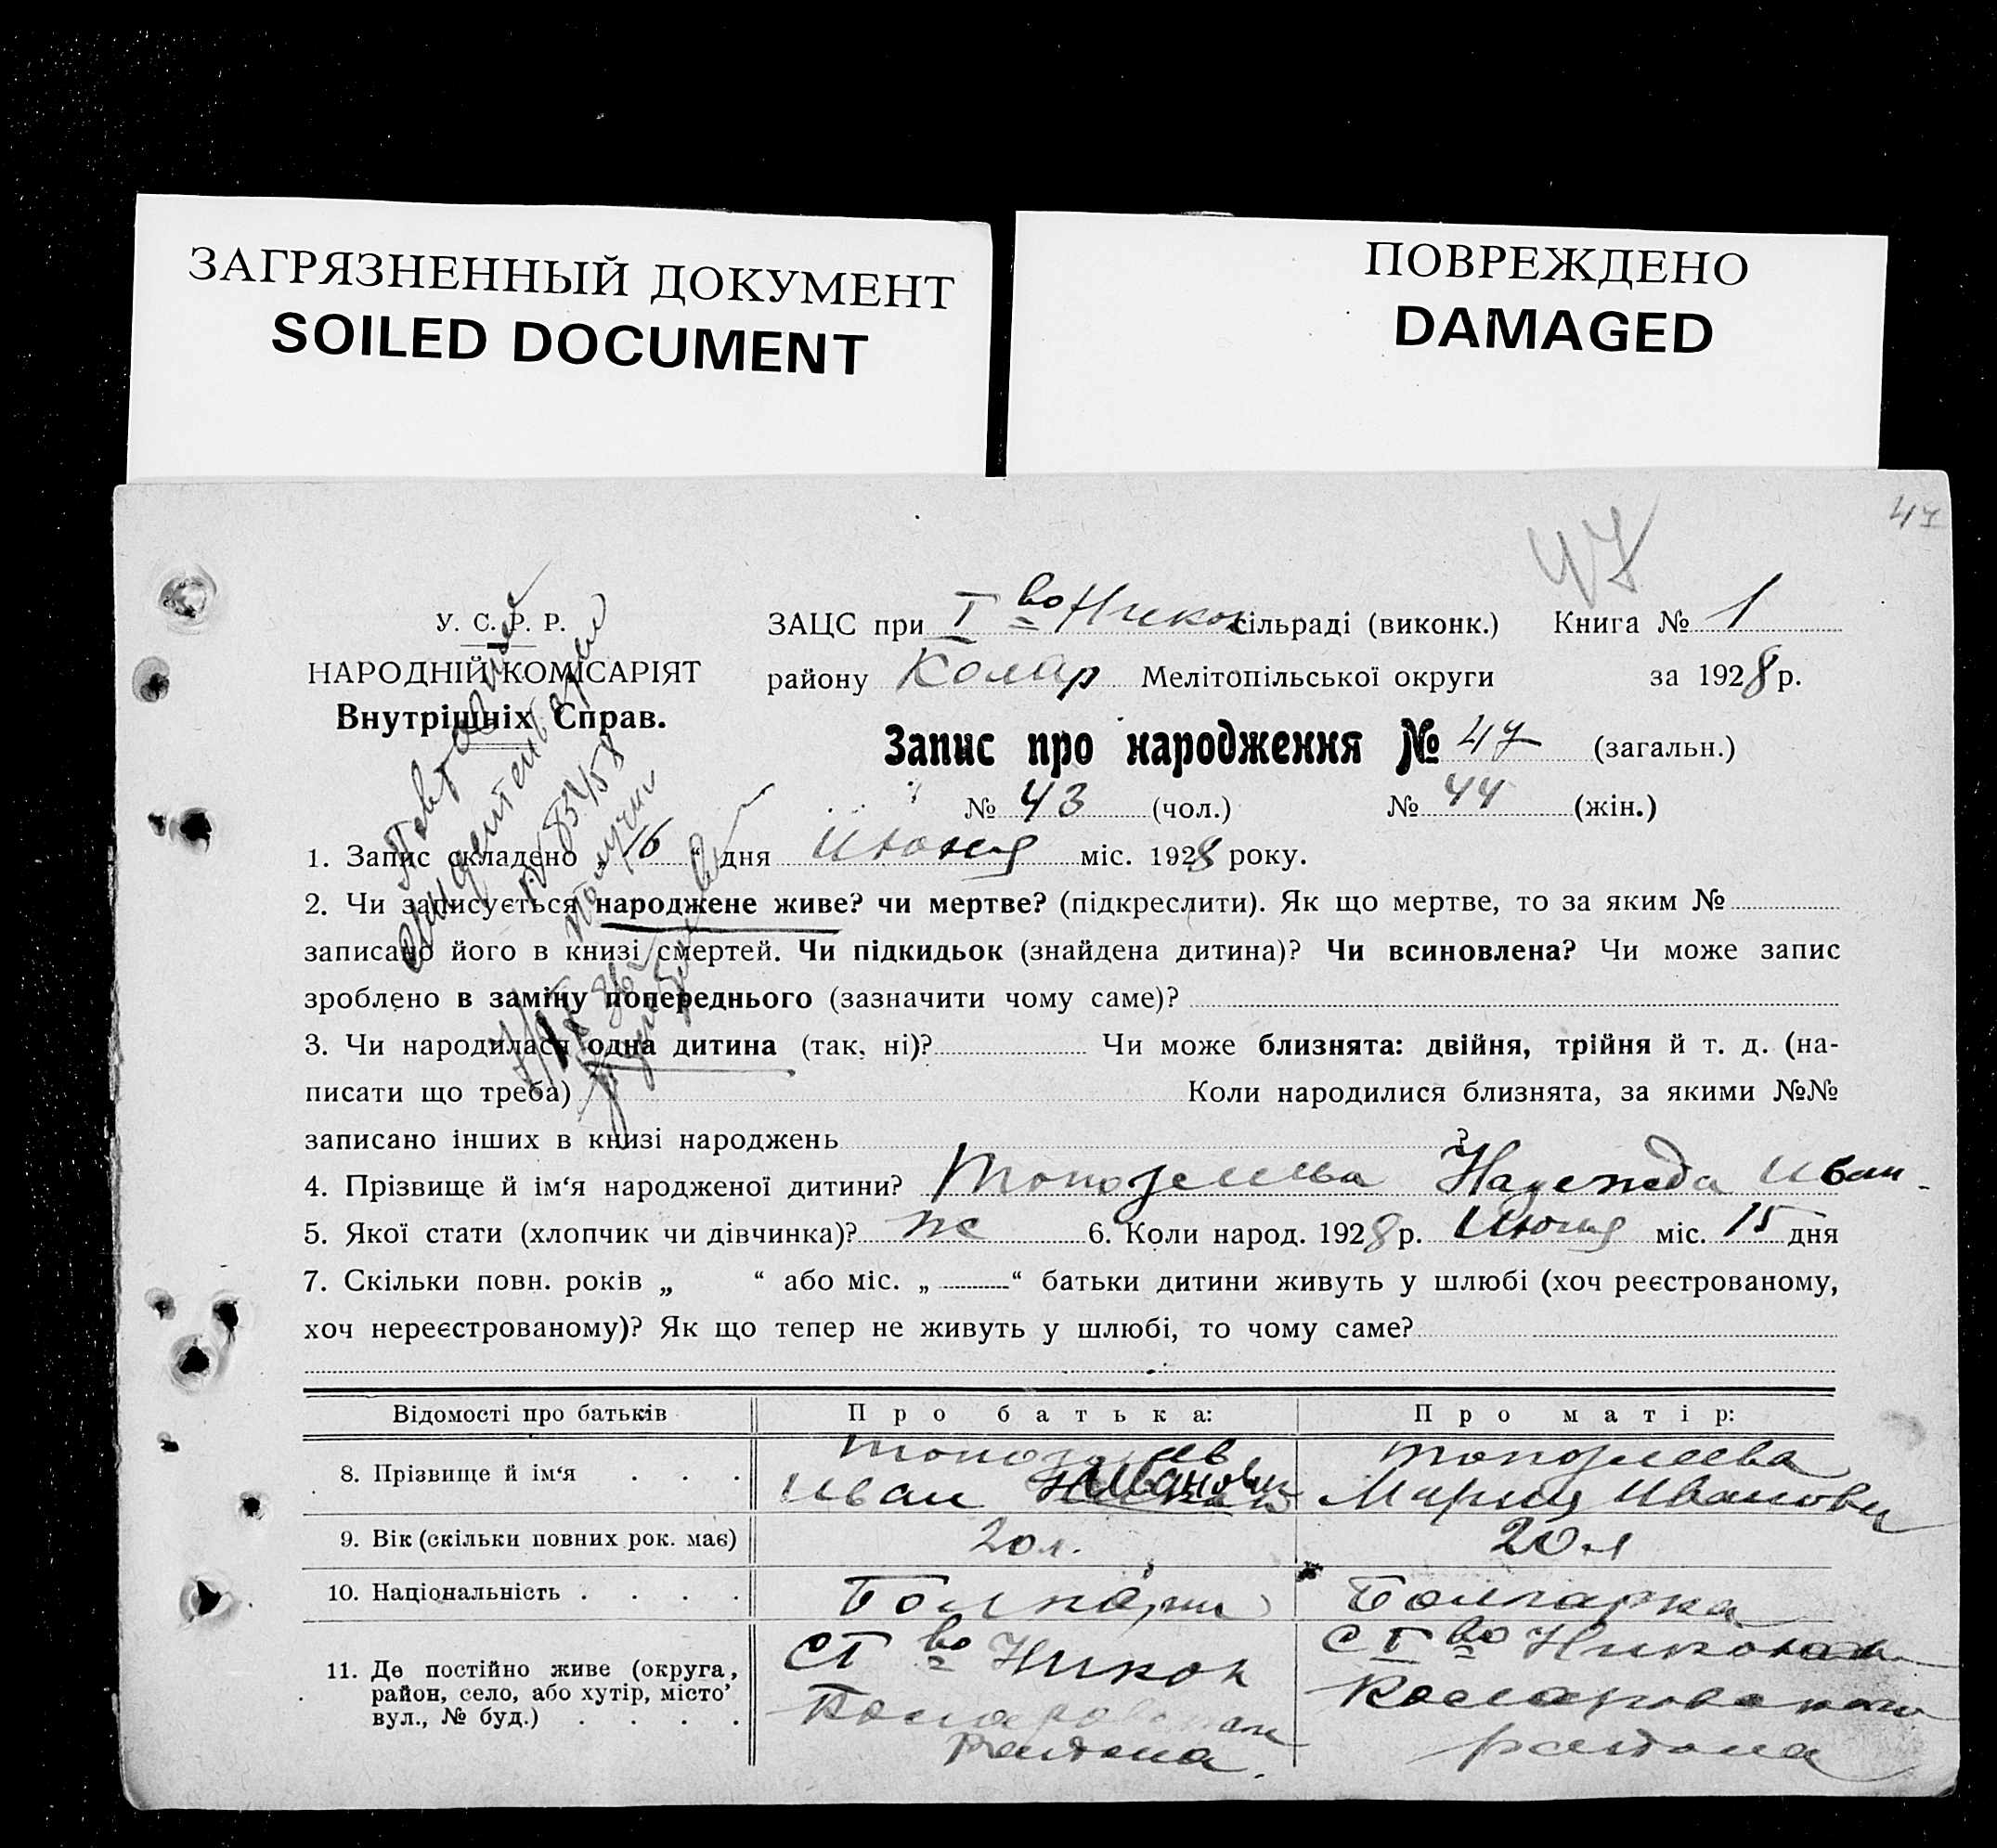 ЗАГРЯЗНЕННЫЙ ДОКУМЕНТ
SOILED DOCUMENT
ПОВРЕЖДЕНО
DAMAGED
47
47
У. С. Р. Р.
НАРОДНІЙ КОМІСАРІЯТ
Внутрішніх Справ.
ЗАЦС при І во Никол сільраді (виконк.) Книга № 1
району Колар Мелітопільської округи за 1928 р.
Запис про народження № 47 (загальн.)
№ 43 (чол.) № 44 (жін.)
1. Запис складено „16“ дня Июня міс. 1928 року.
2. Чи записується народжене живе? чи мертве? (підкреслити). Як що мертве, то за яким №
записано його в книзі смертей. Чи підкидьок (знайдена дитина)? Чи всиновлена? Чи може запис
зроблено в заміну попереднього (зазначити чому саме)?
3. Чи народилася одна дитина (так, ні)? Чи може близнята: двійня, трійня й т. д. (на-
писати що треба) Коли народилися близнята, за якими №№
записано інших в книзі народжень ?
4. Прізвище й ім‘я народженої дитини? Топозлиева Надежда Иван
5. Якої стати (хлопчик чи дівчинка)? ж 6. Коли народ. 1928 р. Июня міс. 15 дня
7. Скільки повн. років „ “ або міс. „ “ батьки дитини живуть у шлюбі (хоч реєстрованому,
хоч нереєстрованому)? Як що тепер не живуть у шлюбі, то чому саме?
Відомості про батьків Про батька: Про матір:
8. Прізвище й ім‘я . . . Топозлиев Иван Иванович Топозлиева Мария Иванови
9. Вік (скільки повних рок. має) 20 л. 20 л
10. Національність . . . . Болгарин Болгарка
11. Де постійно живе (округа,
район, село, або хутір, місто’
вул., № буд.) . . . .
С І во Никол
Коларовскаг
района.
С І во Никола
Коларовскаго
района